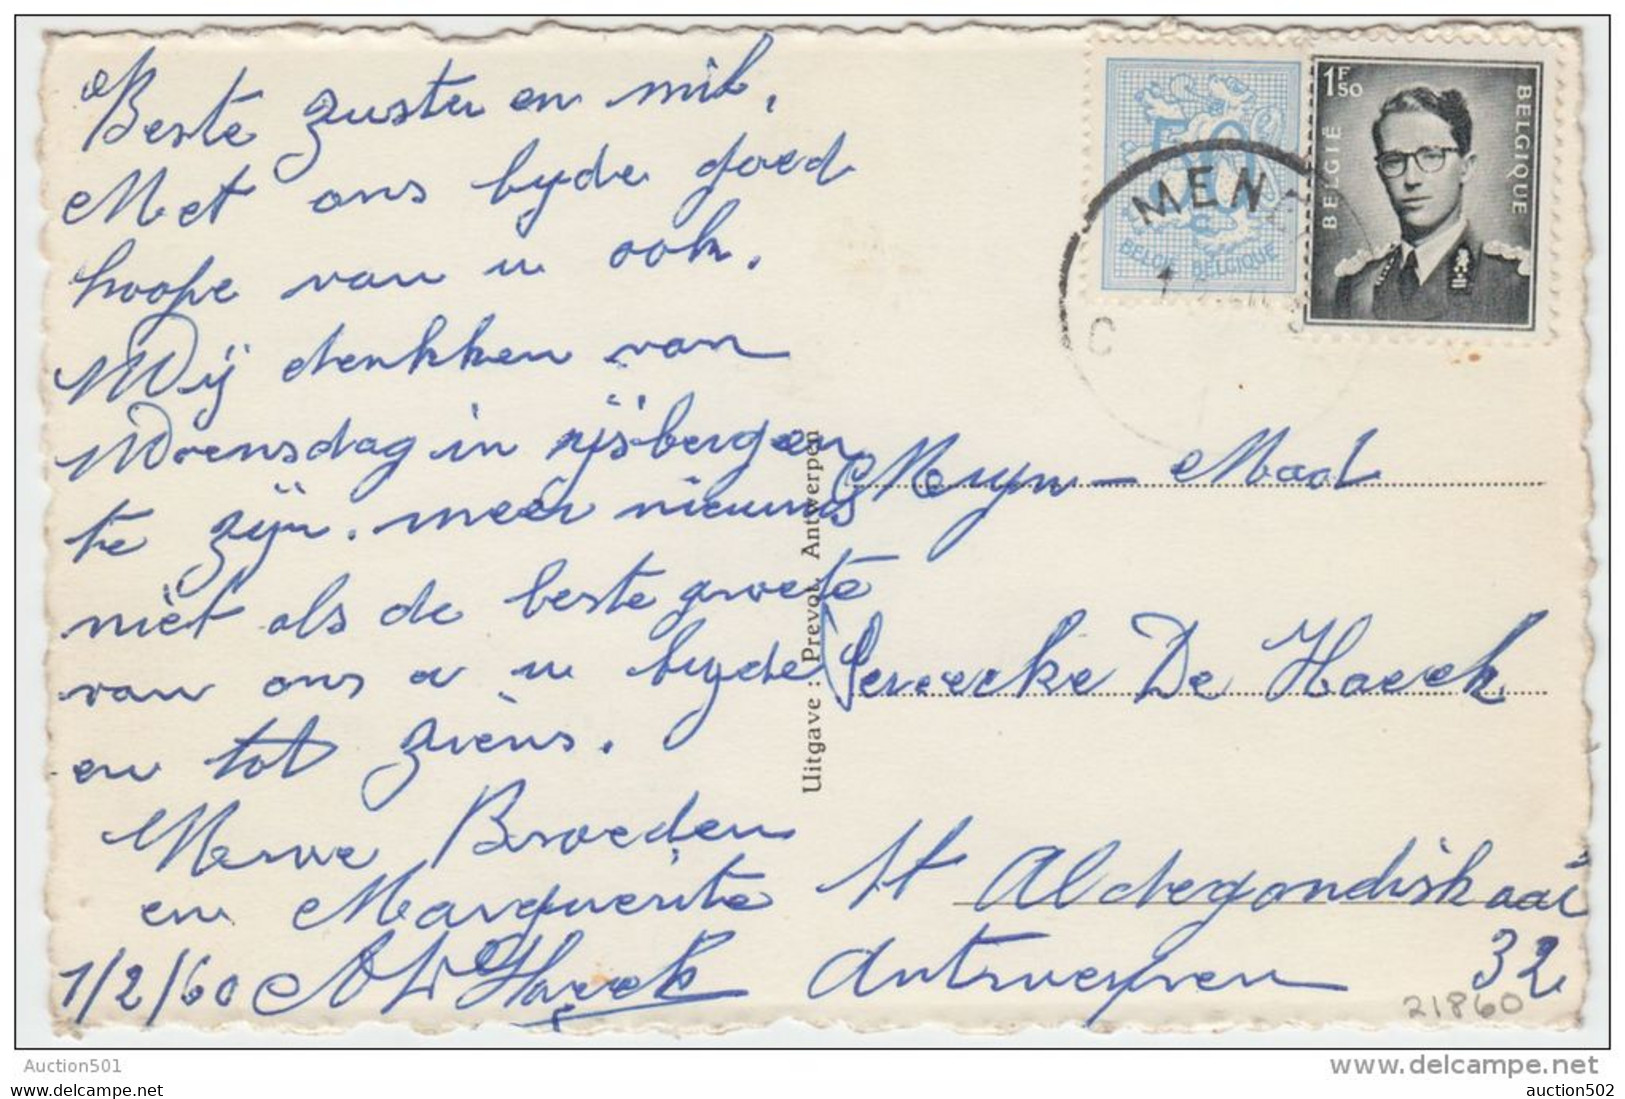 Beste zuster en mil,
Met ons byde goed
hoope van u ook.
Wij denkken van
Woensdag in rijsbergen
te zijn. meer nieuws
niet als de beste groete
van ons a u byde
en tot ziens.
Broeden
en Marguerite
1/2/60 Haeck
1F50
BELGIË
BELGIQUE
50
BELGIË BELGIQUE
MEN
Uitgave : Prevot, Antwerpen
De Haeck
St Aldegondiskaai
Antwerpen 32
21860
Auction501
www.delcampe.net
auction501
auction502